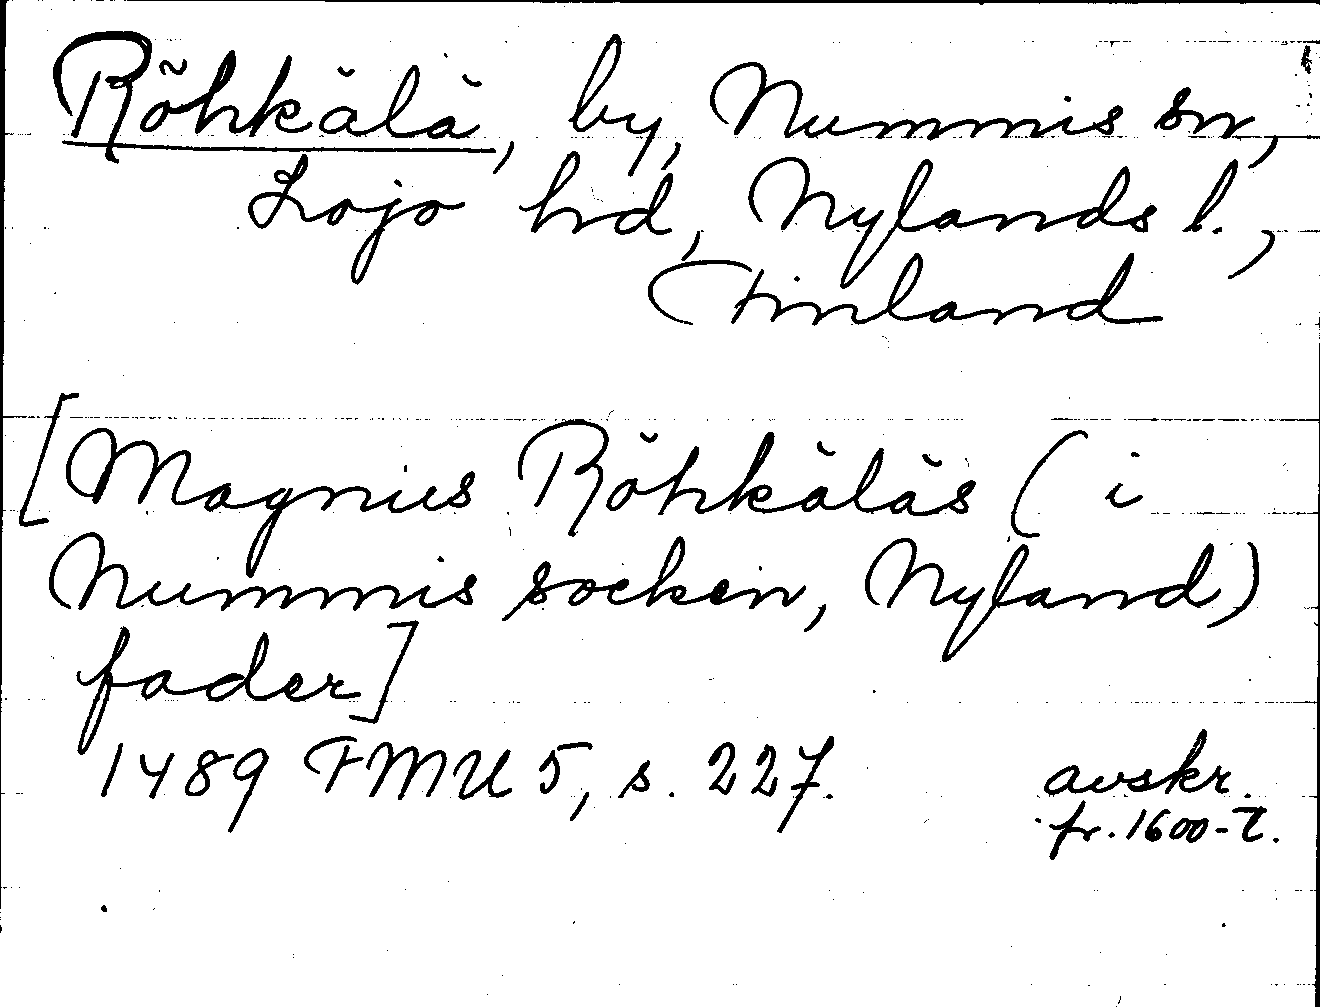 Röhkälä, by, Nummis sn,
Lojo hd, Nylands l.,
Finland
[Magnus Röhkäläs (i
Nummis socken, Nyland)
fader]
1489 FMU 5, s. 227. avskr.
fr. 1600-t.